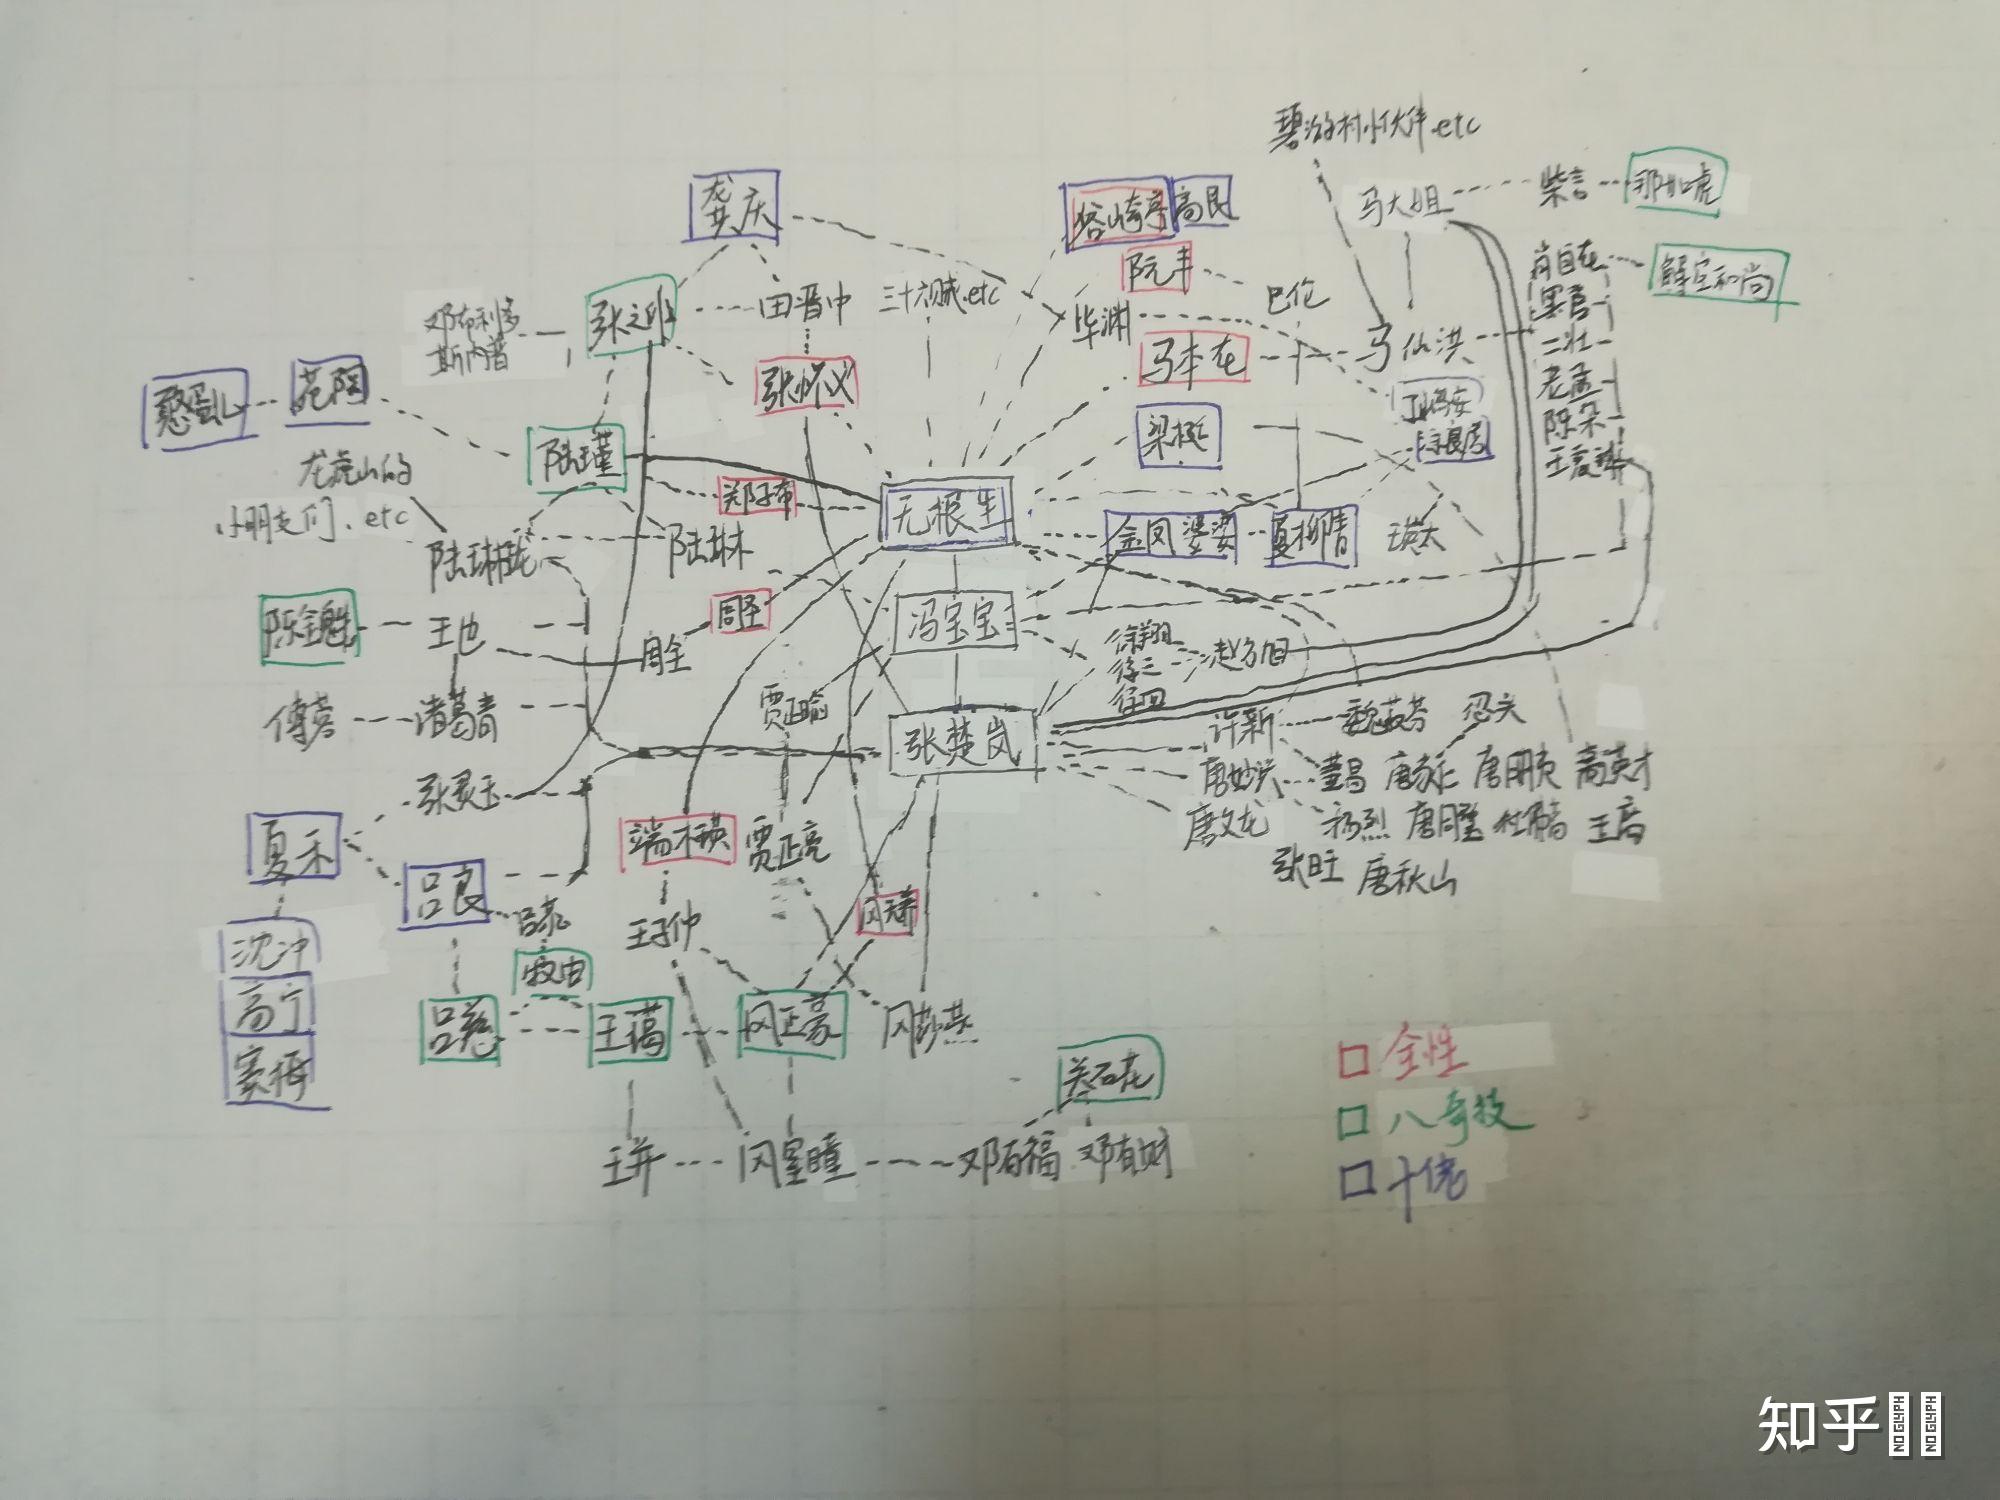 碧游村小伙伴.etc
龚庆
谷畸亭
高艮
马大姐
柴言
那如虎
阮丰
肖自在
解空和尚
张之维
田晋中
三十六贼.etc
毕渊
巴伦
黑管
邓布利多
斯内普
马本在
马仙洪
二壮
憨蛋儿
苑陶
张怀义
丁嶋安
老孟
梁挺
陈朵
龙虎山的
小朋友们、etc
陆瑾
郑子布
无根生
金凤婆婆
夏柳青
瑛太
陆玲珑
陆琳
陈金魁
王也
周圣
冯宝宝
徐翔
徐三
徐四
赵方旭
周全
傅蓉
诸葛青
贾正瑜
张楚岚
许新
忍头
唐妙兴
董昌
唐明夷
高英才
张灵玉
夏禾
端木瑛
贾正亮
唐文龙
杨烈
张旺
唐秋山
吕良
风天养
王子仲
沈冲
高宁
窦梅
牧由
吕慈
王蔼
风正豪
风莎燕
关石花
王并
风星瞳
邓有福
邓有财
全性
八奇技
十佬
知乎